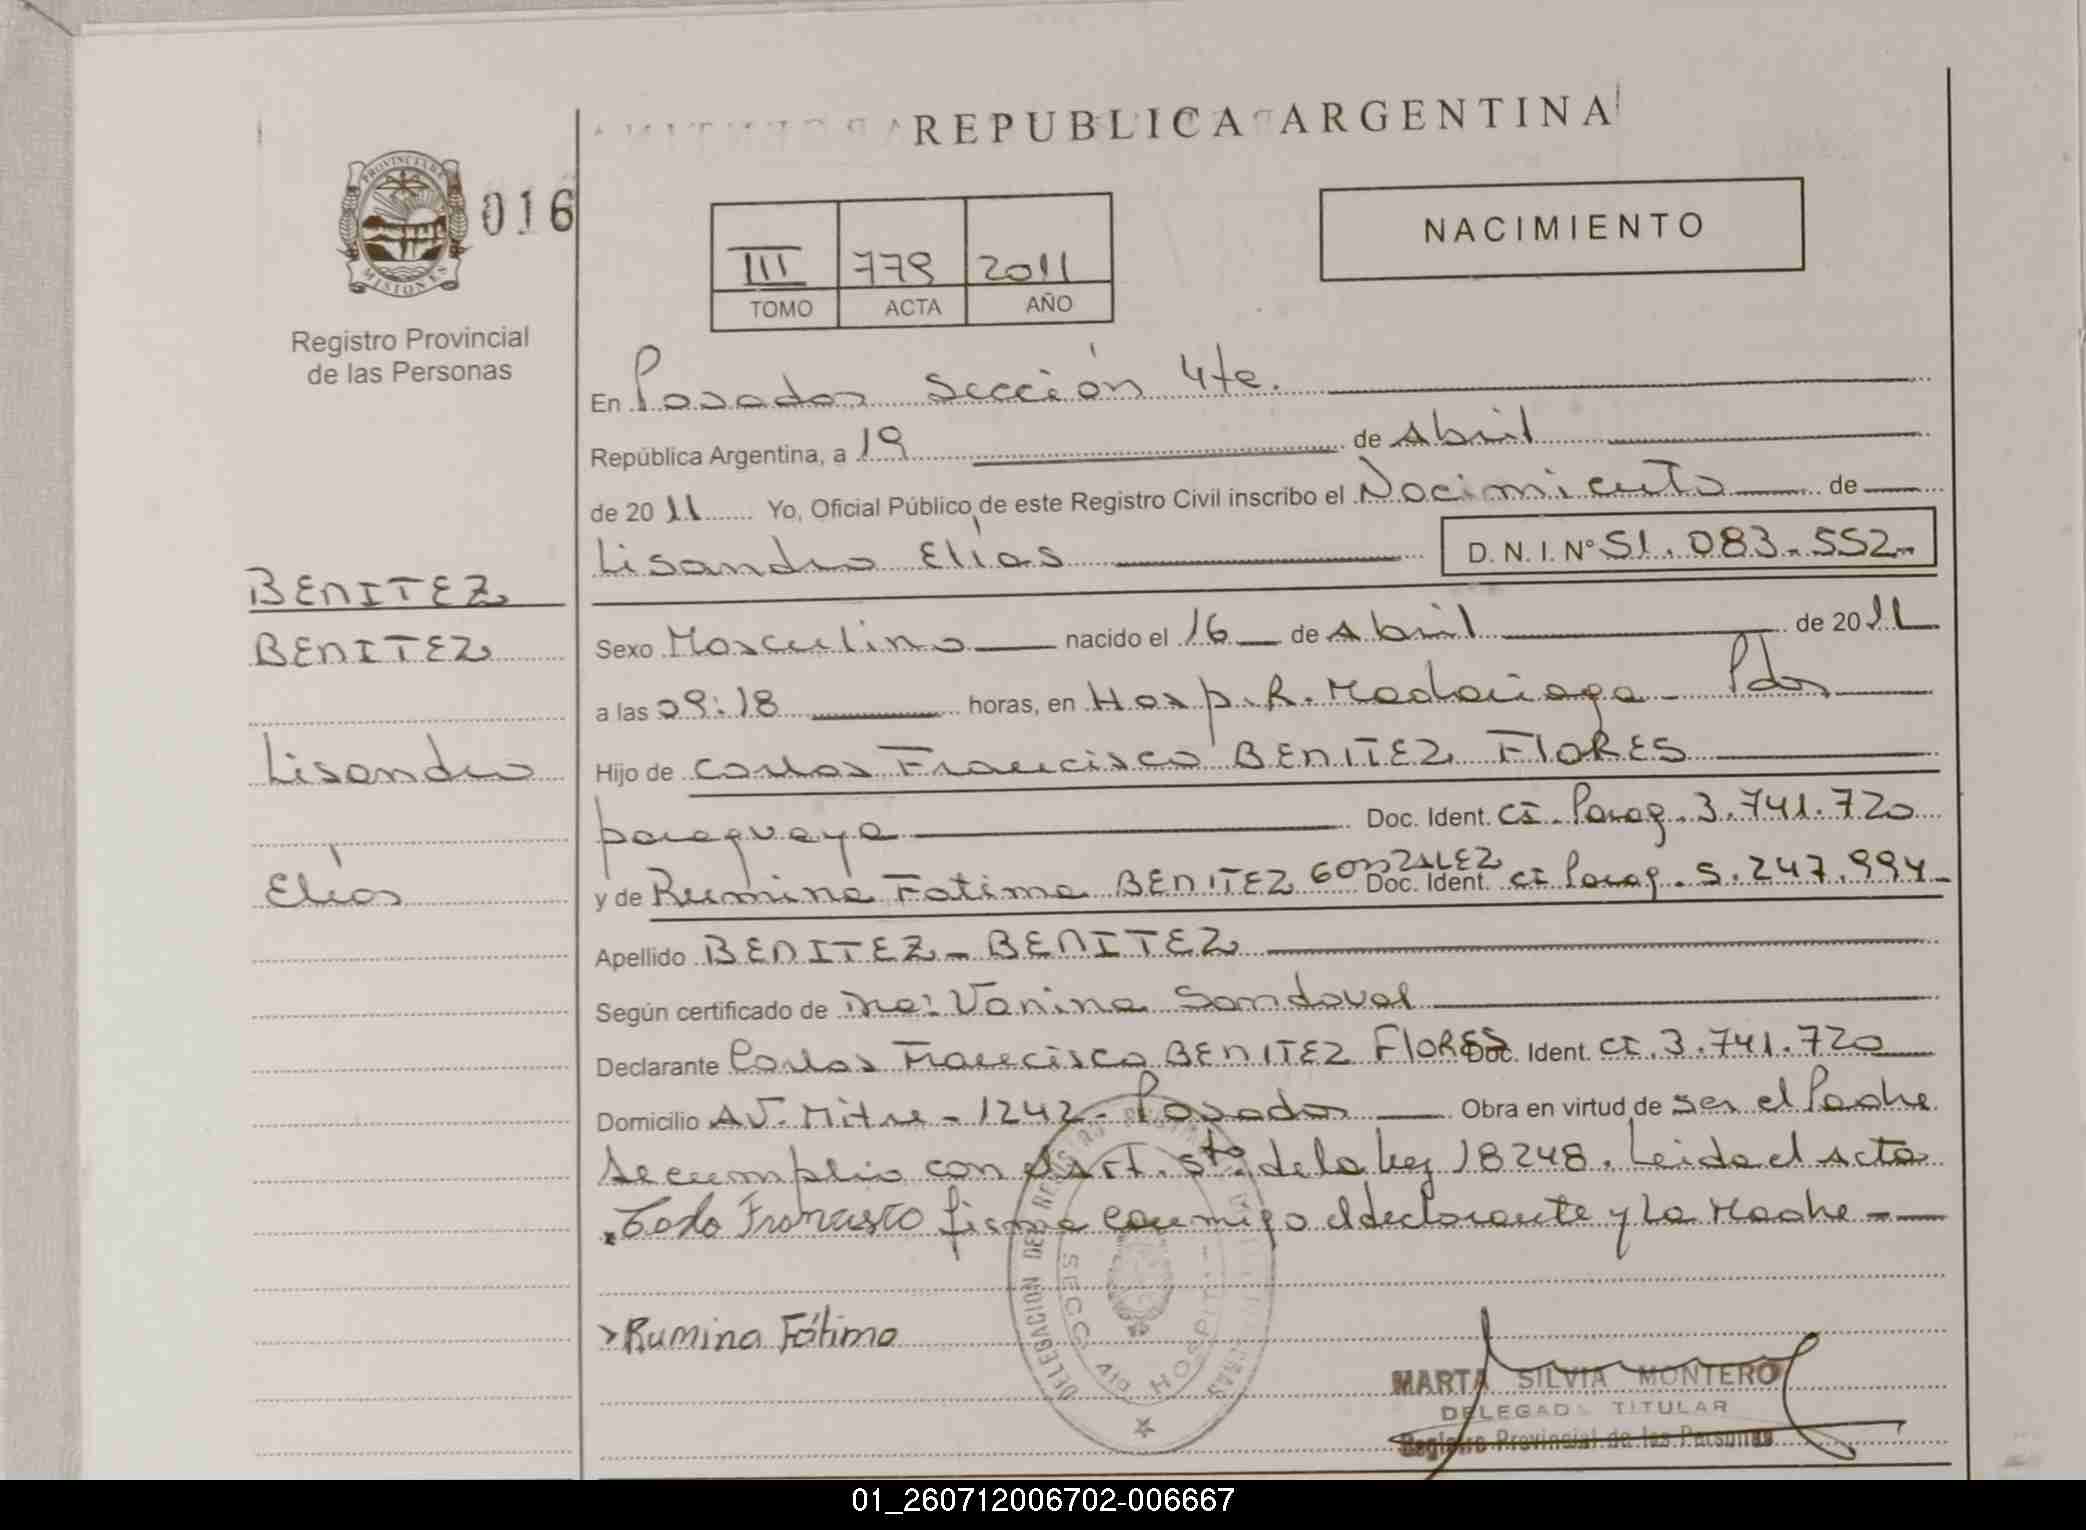 REPUBLICA ARGENTINA
PROVINCIA DE
MISIONES
016
III 779 2011
TOMO ACTA AÑO
NACIMIENTO
Registro Provincial
de las Personas
En Posadas Sección 4ta.
República Argentina, a 19 de Abril
de 2011 Yo, Oficial Público de este Registro Civil inscribo el Nacimiento de
Lisandro Elías D. N. I. N° 51.083.552
BENITEZ
BENITEZ
Lisandro
Elías
Sexo Masculino nacido el 16 de Abril de 2011
a las 09:18 horas, en Hosp. R. Madariaga - Pdas
Hijo de Carlos Francisco BENITEZ FLORES
paraguaya Doc. Ident. CI. Parag. 3.741.720
y de Rumina Fatima BENITEZ GONZALEZ Doc. Ident. CI Parag. 5.247.994
Apellido BENITEZ - BENITEZ
Según certificado de Vanina Sandoval
Declarante Carlos Francisco BENITEZ FLORES Doc. Ident. CI. 3.741.720
Domicilio AV. Mitre - 1242 - Posadas Obra en virtud de ser el Padre
Se cumplio con el art. 5to. de la Ley 18248. Leida el acta
firma conmigo el declarante y La Madre
Rumina Fátima
DELEGACION DEL REGISTRO
SECC. 4ta HOSPITAL
MARTA SILVIA MONTERO
DELEGADA TITULAR
Registro Provincial de las Personas
01_260712006702-006667